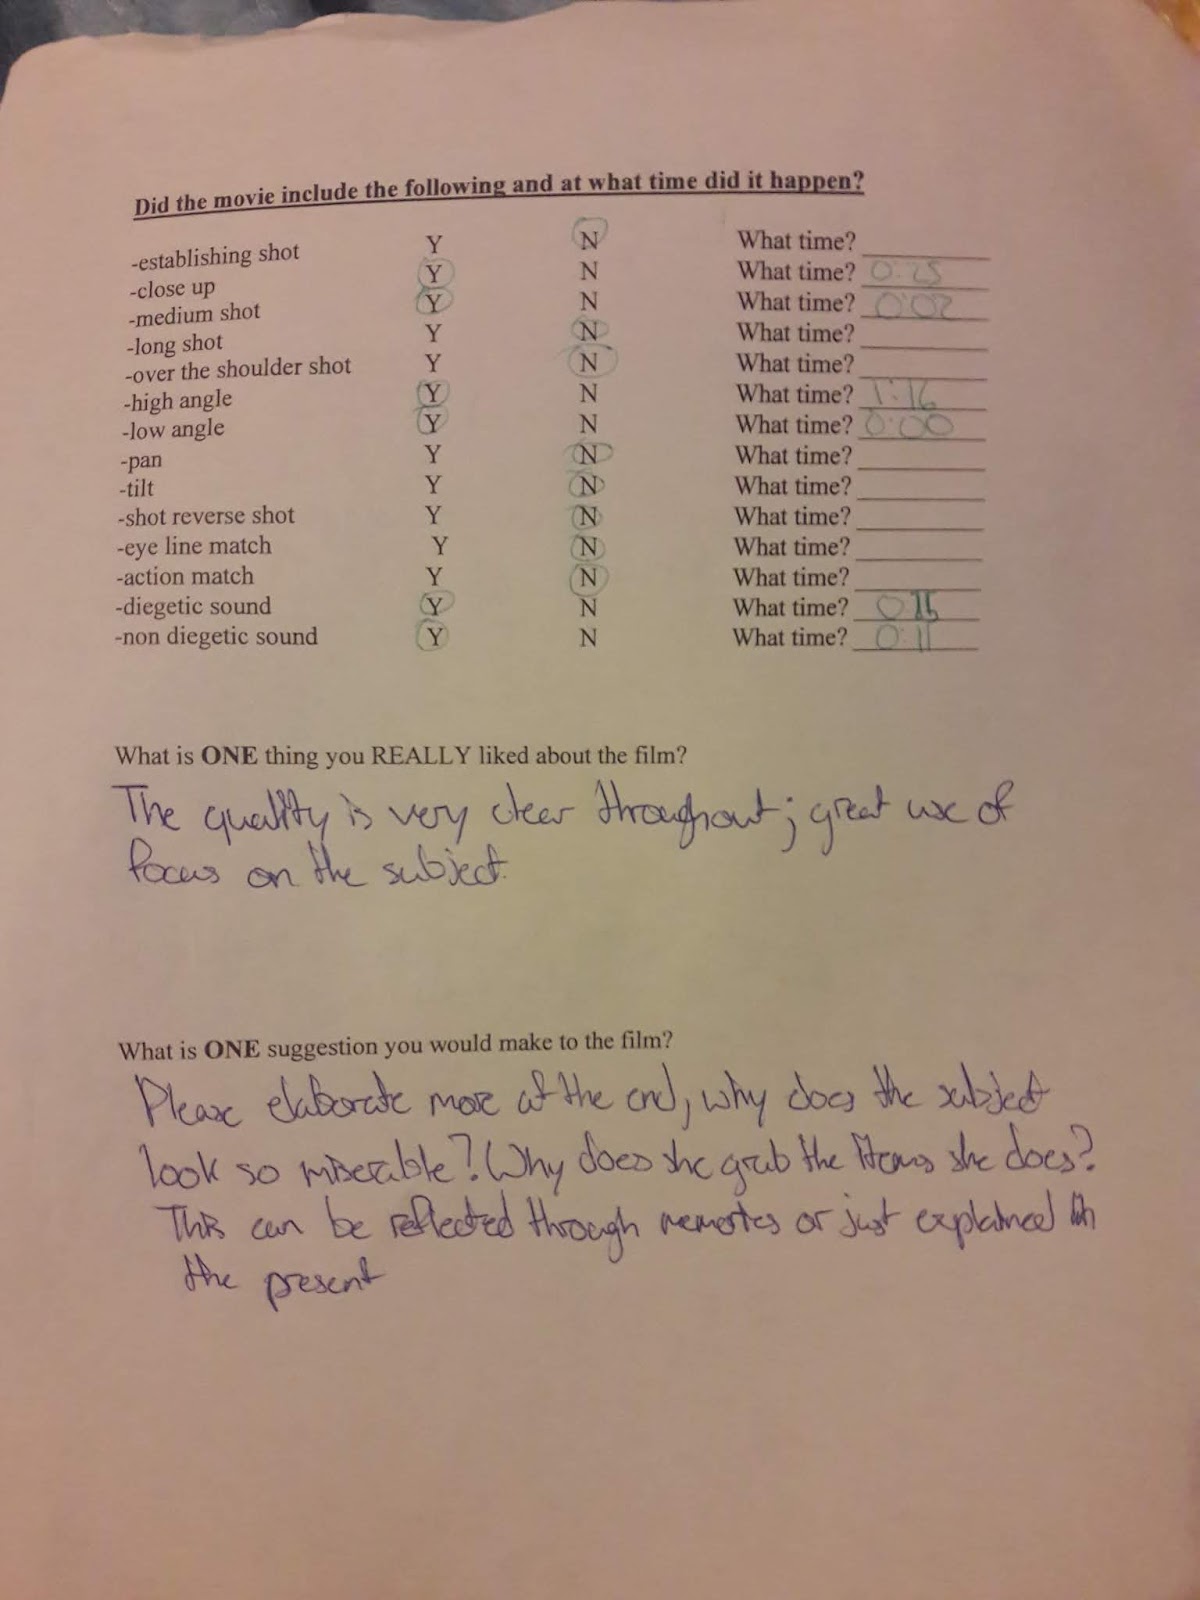 Did the movie include the following and at what time did it happen?
-establishing shot Y N What time?
-close up Y N What time? 0:25
-medium shot Y N What time? 0:02
-long shot Y N What time?
-over the shoulder shot Y N What time?
-high angle Y N What time? 1:16
-low angle Y N What time? 0:00
-pan Y N What time?
-tilt Y N What time?
-shot reverse shot Y N What time?
-eye line match Y N What time?
-action match Y N What time?
-diegetic sound Y N What time?
-non diegetic sound Y N What time? 0:11
What is ONE thing you REALLY liked about the film?
The quality is very clear throughout; great use of
focus on the subject.
What is ONE suggestion you would make to the film?
Please elaborate more at the end, why does the subject
look so miserable? Why does she grab the items she does?
This can be reflected through memories or just explained in
the present